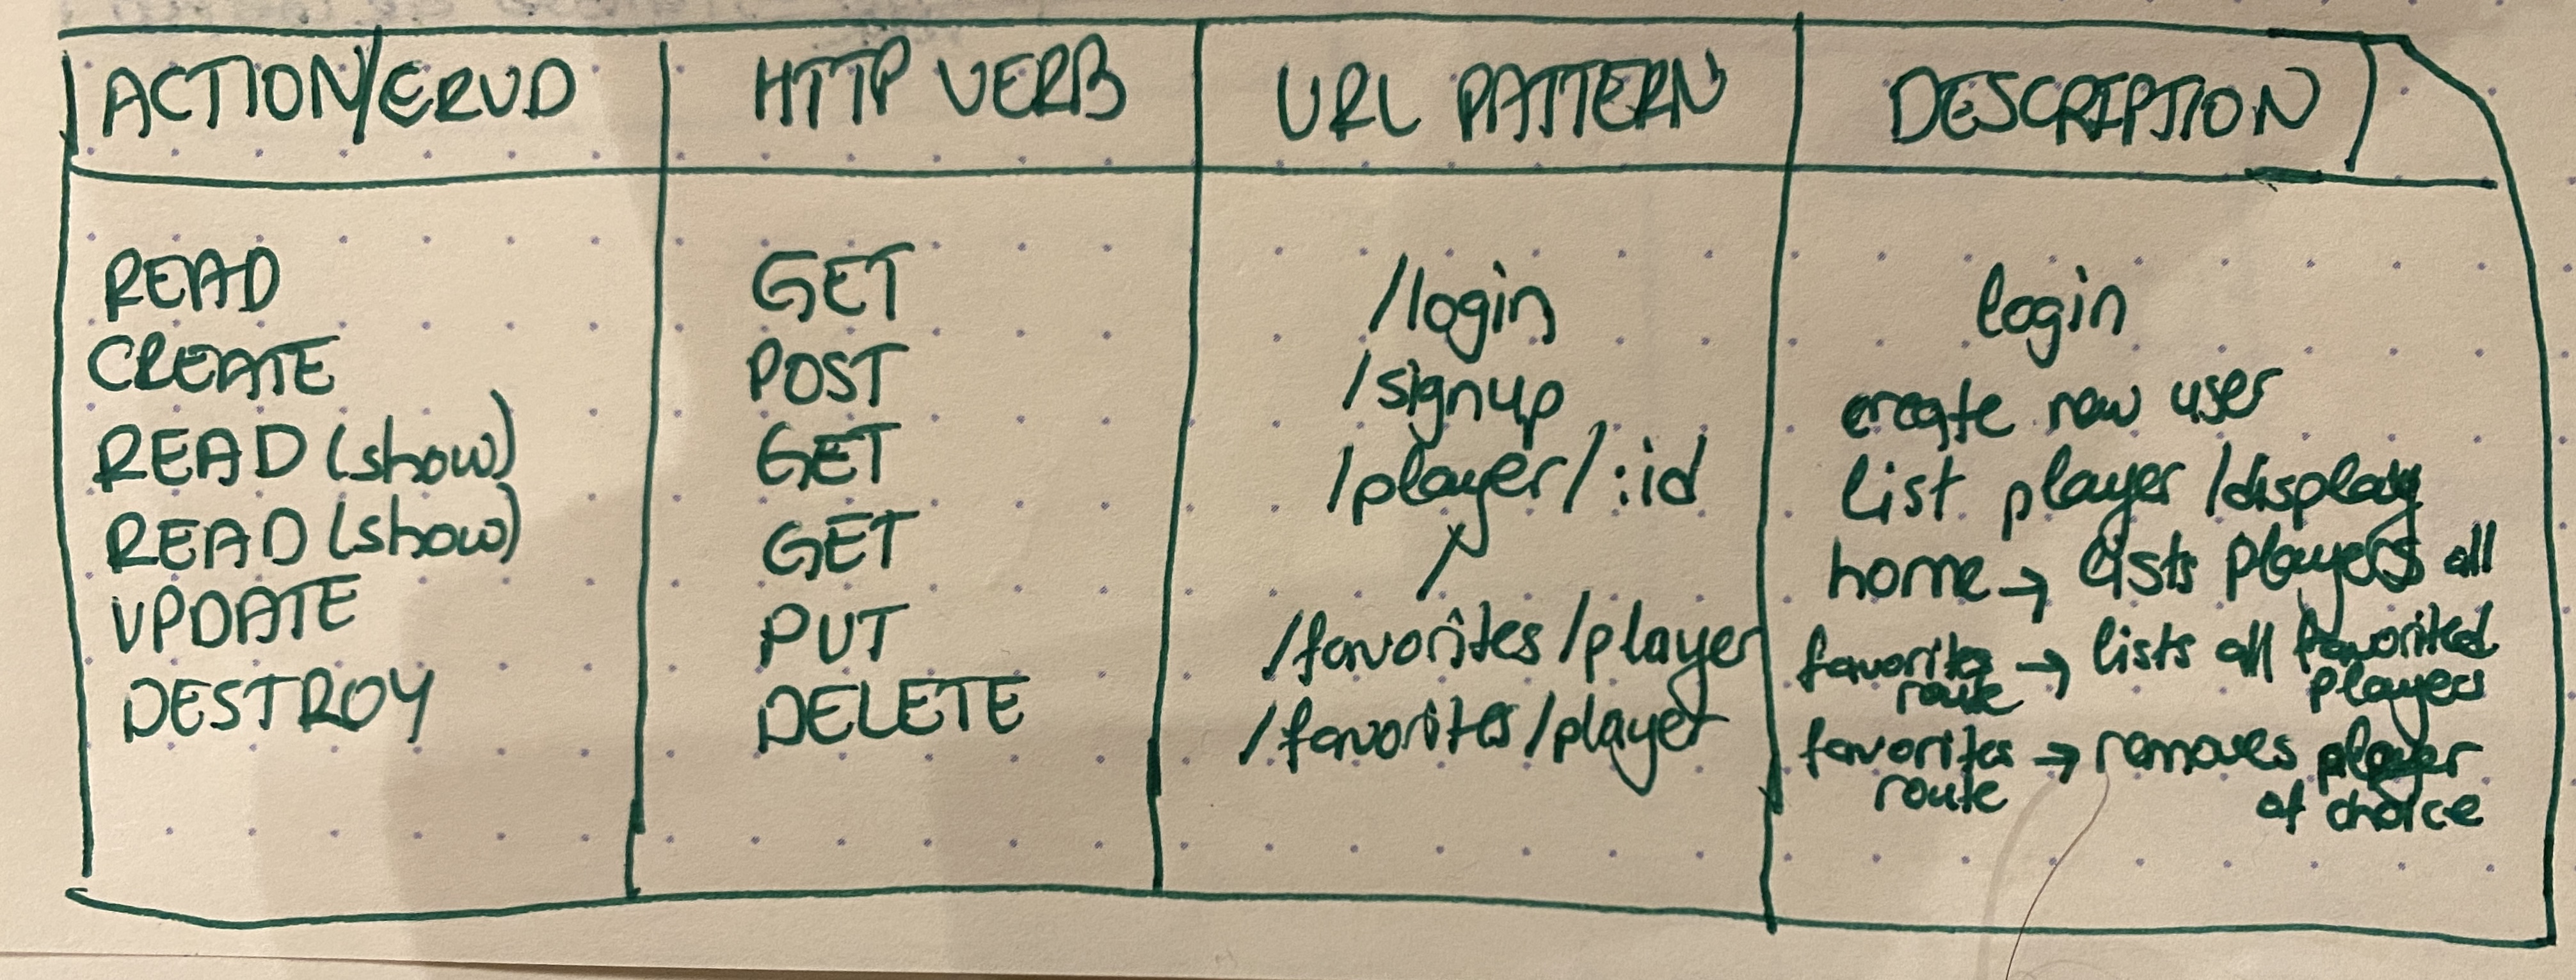 ACTION/CRUD HTTP VERB URL PATTERN DESCRIPTION
READ GET /login login
CREATE POST /signup create new user
READ (show) GET /player/:id list player/display
READ (show) GET / home → lists players all
UPDATE PUT /favorites/player favorites route → lists all favorited players
DESTROY DELETE /favorites/player favorites route → removes player of choice